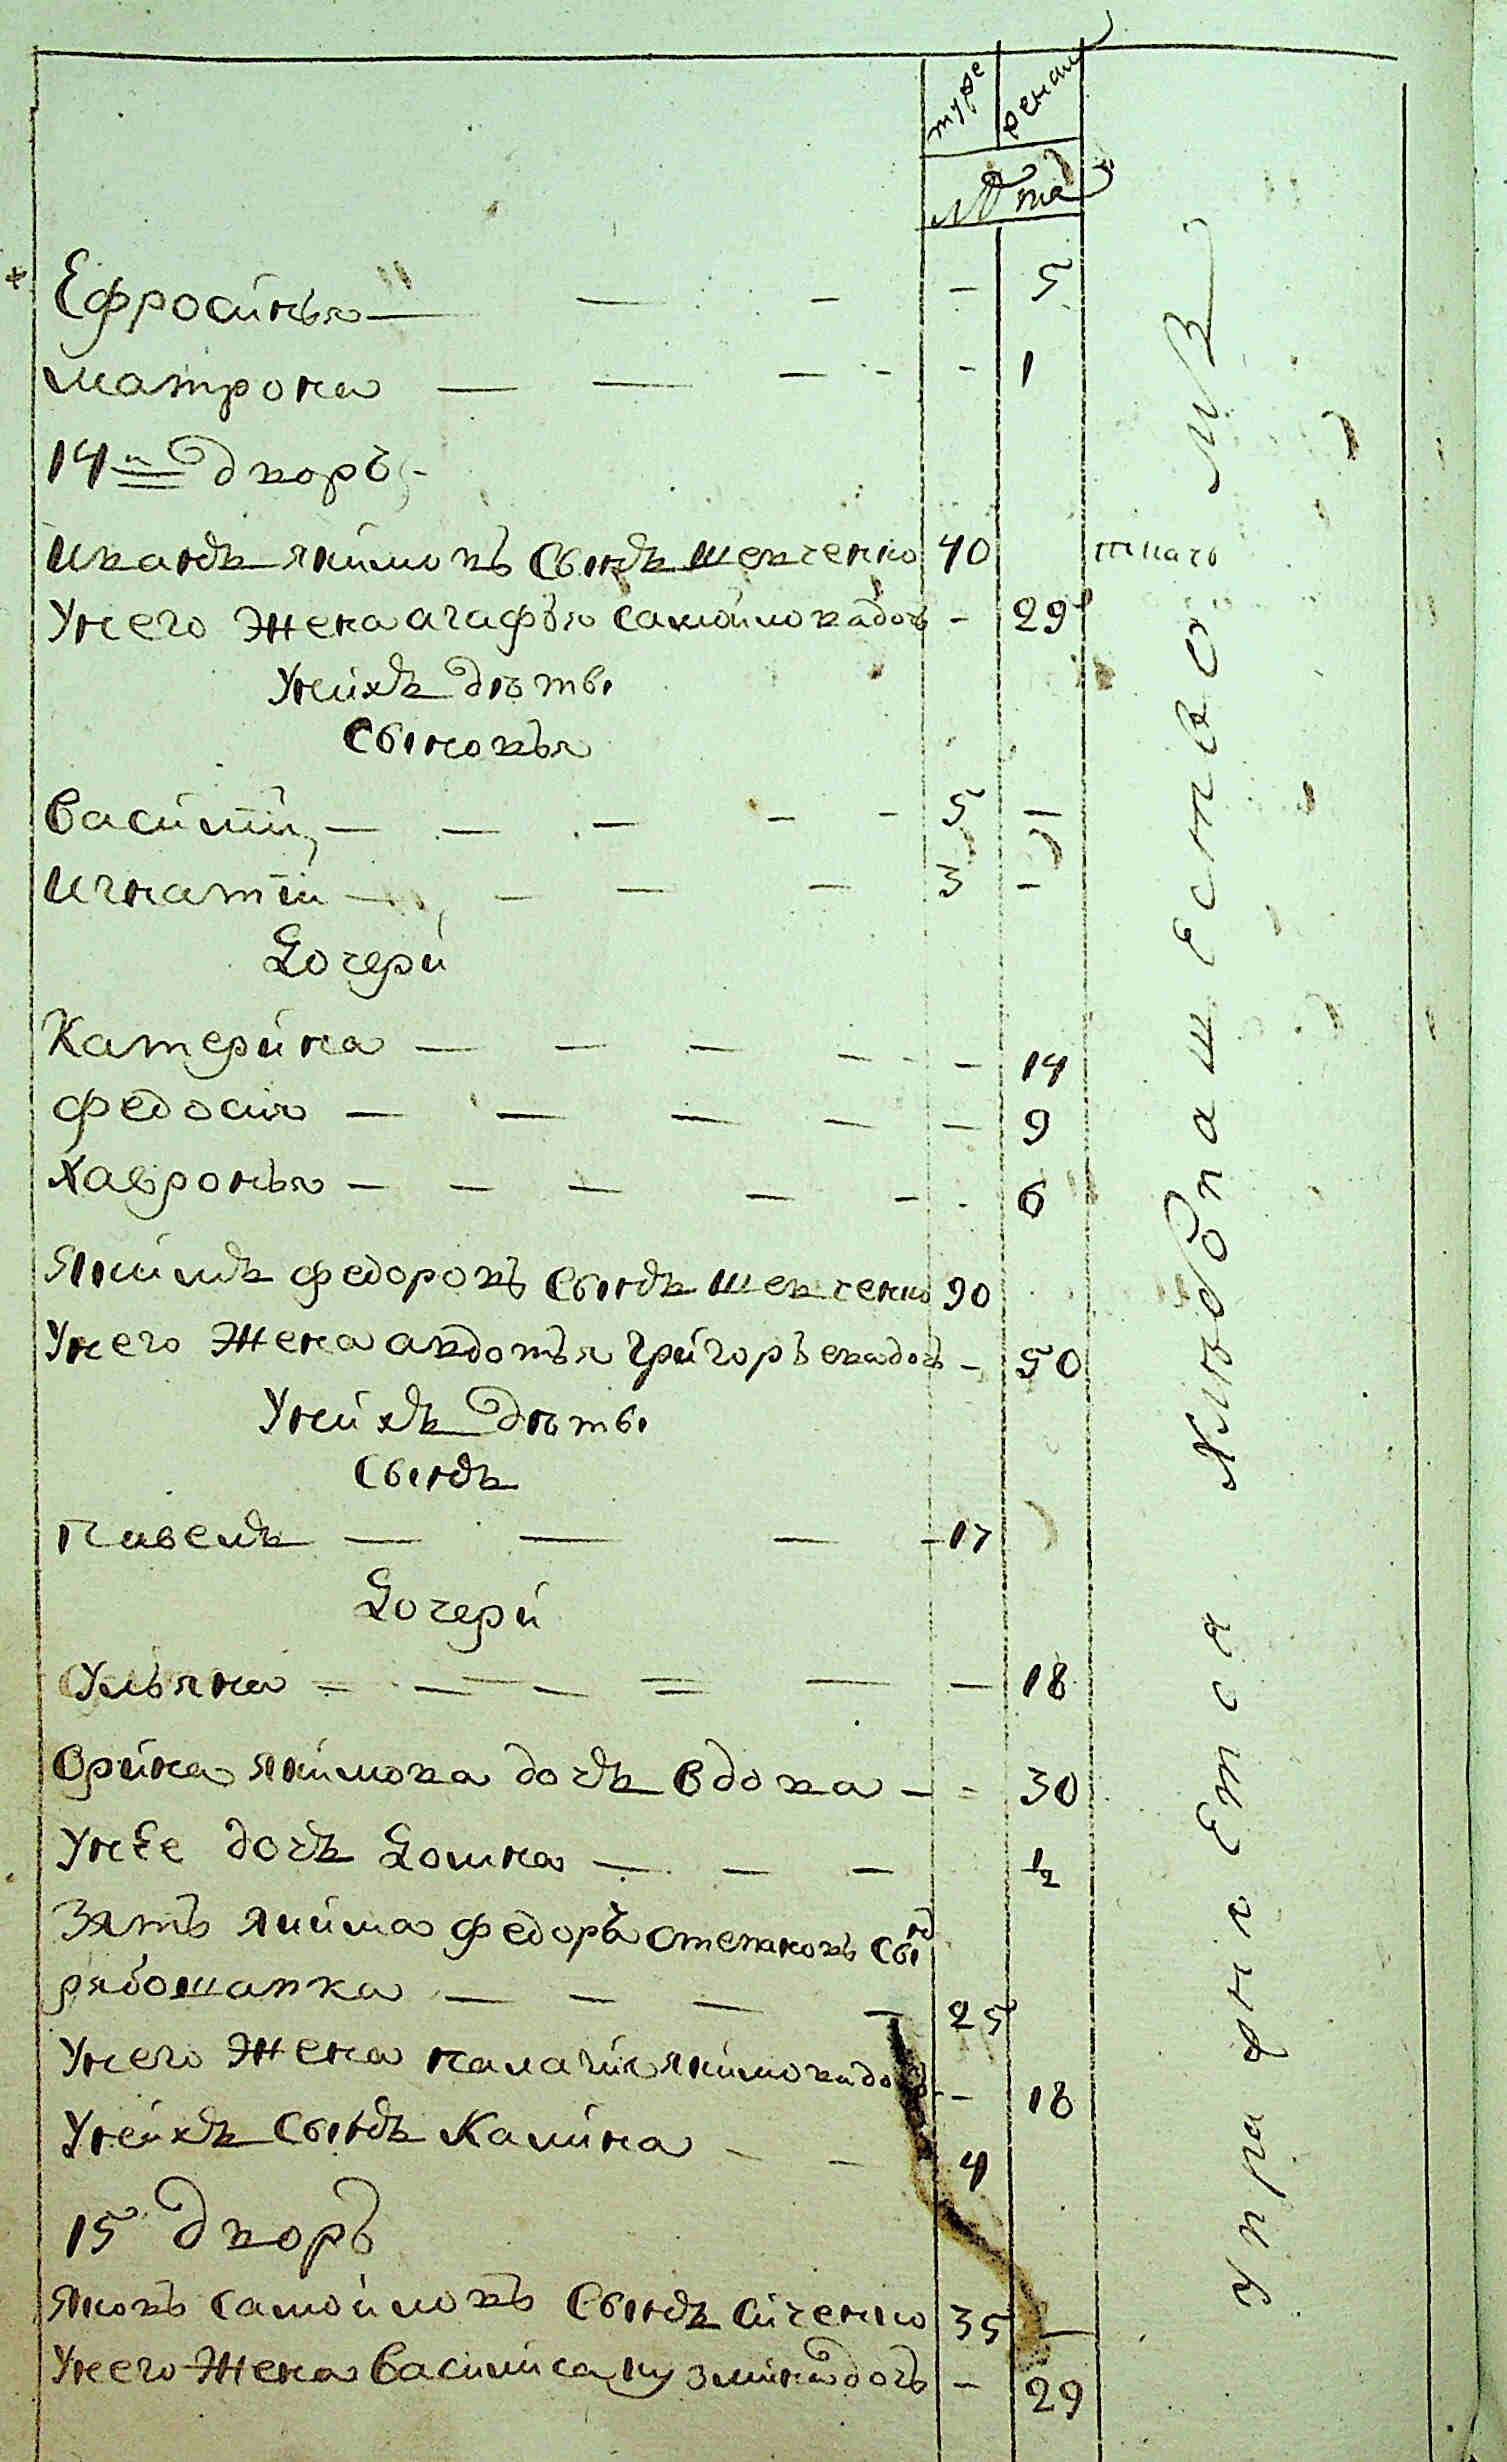 муже женск
лѣта
Ефросинья — — — - 5
матрона — — — - 1
14й дворъ
иванъ якимовъ сынъ шевченко 40 ткачь
Унего жена агафья самойлова дочь - 29
Унихъ дѣты
сыновья
василій — — — - 5 —
игнатій — — — - 3 -
Дочери
Катерина — — — - 14
федосия — — — - 9
хавронья — — — - 6
якимъ федоровъ сынъ шевченко 90
Унего жена авдотья григорьева дочь - 50
Унихъ дѣты
сынъ
павелъ — — — 17
Дочери
Ульяна — — — - 18
орина якимова дочь вдова - 30
Унее дочь Домна — — — ½
зять якима федоръ степановъ сынъ
рябошапка — — — 25
Унего жена палагия якимова дочь - 18
Унихъ сынъ Калина - - 4
15 дворъ
яковъ самойловъ сынъ сиченко 35 —
Унего жена василиса кузмина дочь - 29
упражняется хлѣбопашествомъ